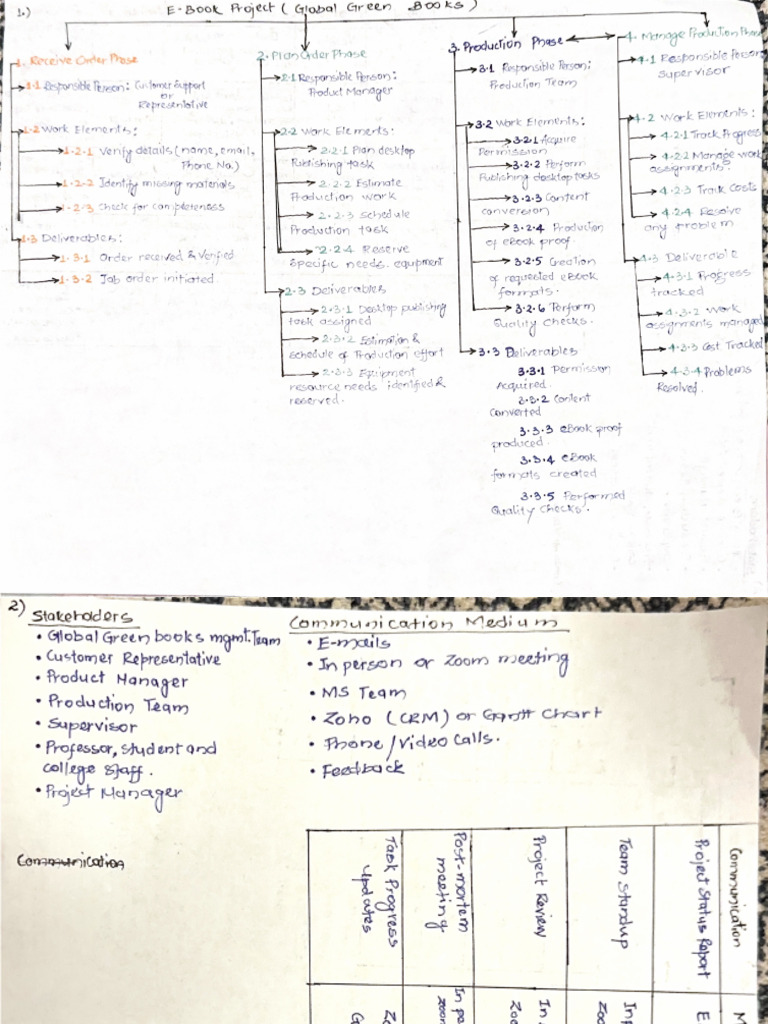 1.) E-Book Project ( Global Green Books )
1. Receive Order Phase
1.1 Responsible Person: Customer Support
or
Representative
1.2 Work Elements:
1.2.1 Verify details (name, email,
Phone No.)
1.2.2 Identify missing materials
1.2.3 Check for completeness
1.3 Deliverables:
1.3.1 Order received & Verified
1.3.2 Job order initiated
2. Plan Order Phase
2.1 Responsible Person:
Product Manager
2.2 Work Elements:
2.2.1 Plan desktop
Publishing task
2.2.2 Estimate
Production work
2.2.3 Schedule
Production task
2.2.4 Reserve
Specific needs. equpment
2.3 Deliverables
2.3.1 Desktop publishing
task assigned
2.3.2 Estimation &
schedule of Production effort
2.3.3 Equipment
resource needs identified &
reserved.
3. Production Phase
3.1 Responsible Person:
Production Team
3.2 Work Elements:
3.2.1 Acquire
Permission
3.2.2 Perform
Publishing desktop tasks
3.2.3 Content
conversion
3.2.4 Production
of eBook proof
3.2.5 Creation
of requested eBook
formats.
3.2.6 Perform
Quality Checks.
3.3 Deliverables
3.3.1 Permission
Acquired
3.3.2 Content
Converted
3.3.3 eBook proof
produced.
3.3.4 eBook
formats created
3.3.5 Performed
Quality Checks.
4. Manage Production Phase
4.1 Responsible Person
Supervisor
4.2 Work Elements:
4.2.1 Track Progress
4.2.2 Manage work
assignments.
4.2.3 Track Costs
4.2.4 Resolve
any problem
4.3 Deliverable
4.3.1 Progress
tracked
4.3.2 Work
assignments managed
4.3.3 Cost Tracked
4.3.4 Problems
Resolved.
2)
Stakeholders
• Global Green books mgmt. Team
• Customer Representative
• Product Manager
• Production Team
• Supervisor
• Professor, student and
college staff.
• Project Manager
Communication Medium
• E-mails
• In person or Zoom meeting
• MS Team
• Zoho (CRM) or Gantt Chart
• Phone / Video Calls.
• Feedback
Communication
Communication
Project Status Report
Team standup
Project Review
Post-mortem
meeting
Task Progress
Updates